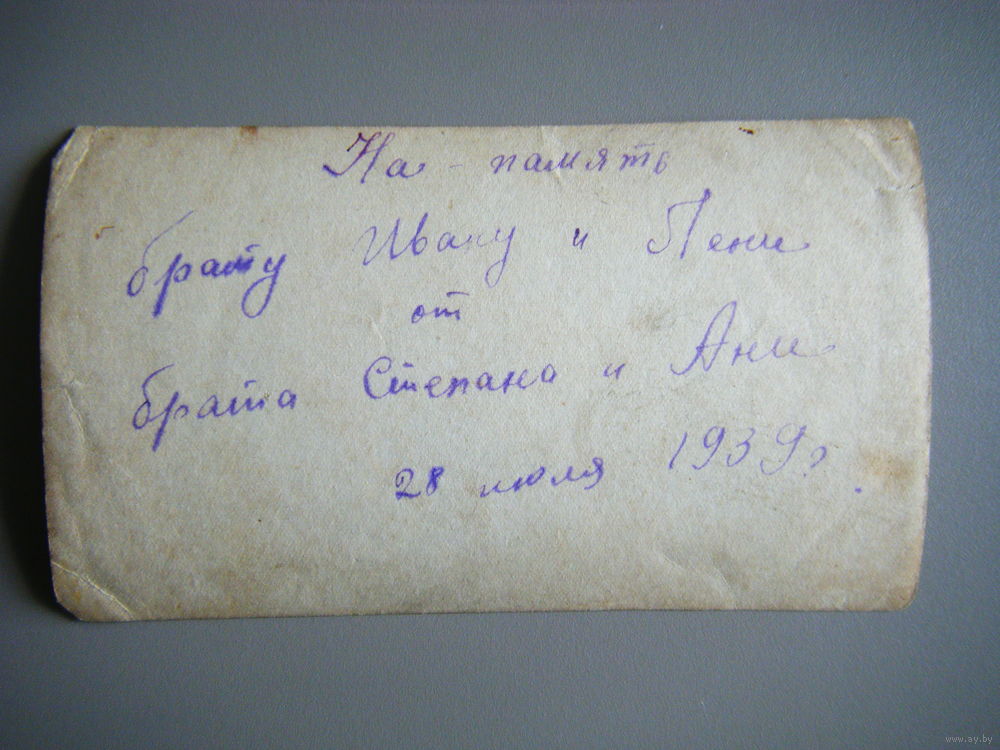 На - память
брату Ивану и Лени
от
брата Степана и Ани
28 июля 1939 г.
www.ay.by